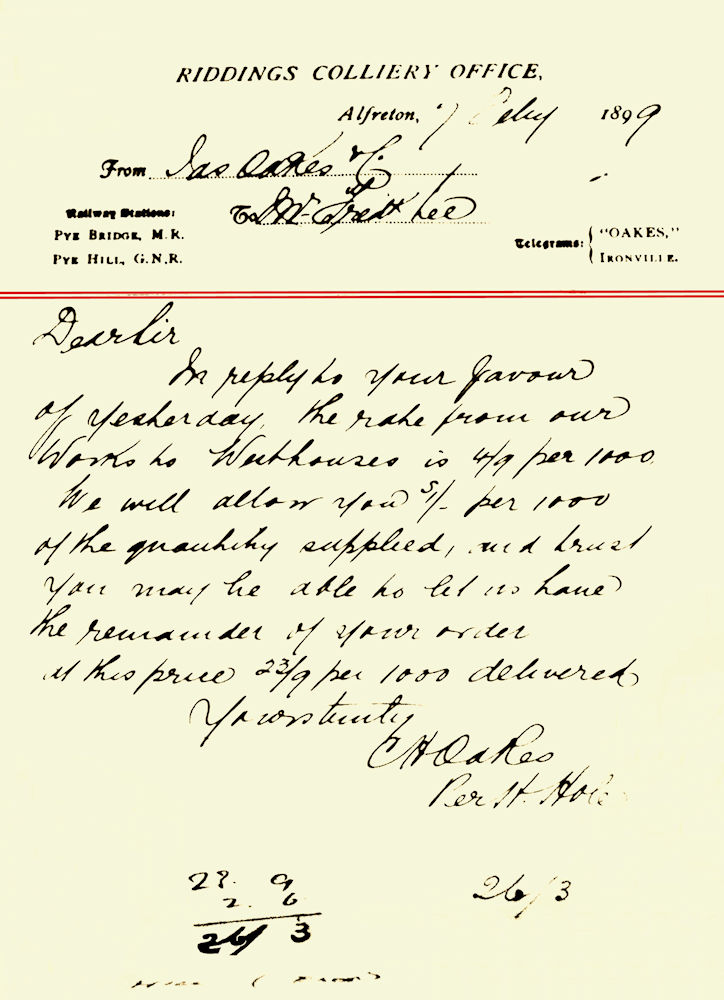 RIDDINGS COLLIERY OFFICE,
Alfreton, 7 Feby 1899
From Jas Oakes & Co.
To Mr. Fredk Lee
Railway Stations:
PYE BRIDGE, M.R.
PYE HILL, G.N.R.
Telegrams: { "OAKES," IRONVILLE.
Dear Sir
In reply to your favour
of yesterday, the rate from our
Works to Westhouses is 4/9 per 1000.
We will allow you 5/- per 1000
of the quantity supplied, and trust
you may be able to let us have
the remainder of your order
at this price 23/9 per 1000 delivered
Yours truly
C H Oakes
Per H.
23. 9
2. 6
26/ 3
26/3